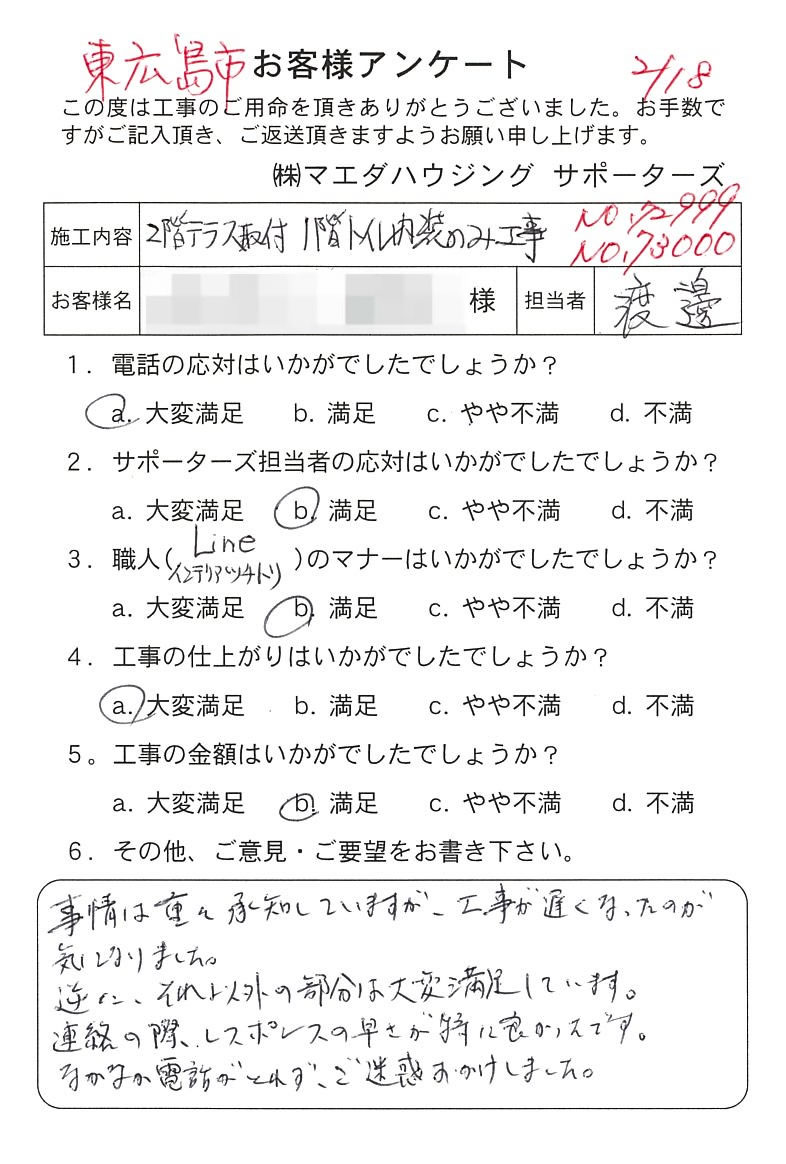 東広島市 お客様アンケート 2/18
この度は工事のご用命を頂きありがとうございました。お手数で
すがご記入頂き、ご返送頂きますようお願い申し上げます。
㈱マエダハウジング サポーターズ
施工内容 2階テラス取付 1階トイレ内装のみ工事 NO,72999
NO,73000
お客様名 様 担当者 渡邊
1. 電話の応対はいかがでしたでしょうか?
a. 大変満足 b. 満足 c. やや不満 d. 不満
2. サポーターズ担当者の応対はいかがでしたでしょうか?
a. 大変満足 b. 満足 c. やや不満 d. 不満
3. 職人(Line インテリアツチトリ)のマナーはいかがでしたでしょうか?
a. 大変満足 b. 満足 c. やや不満 d. 不満
4. 工事の仕上がりはいかがでしたでしょうか?
a. 大変満足 b. 満足 c. やや不満 d. 不満
5。工事の金額はいかがでしたでしょうか?
a. 大変満足 b. 満足 c. やや不満 d. 不満
6. その他、ご意見・ご要望をお書き下さい。
事情は重々承知していますが、工事が遅くなったのが
気になりました。
逆に、それ以外の部分は大変満足しています。
連絡の際、レスポンスの早さが特に良かったです。
なかなか電話がとれず、ご迷惑おかけしました。